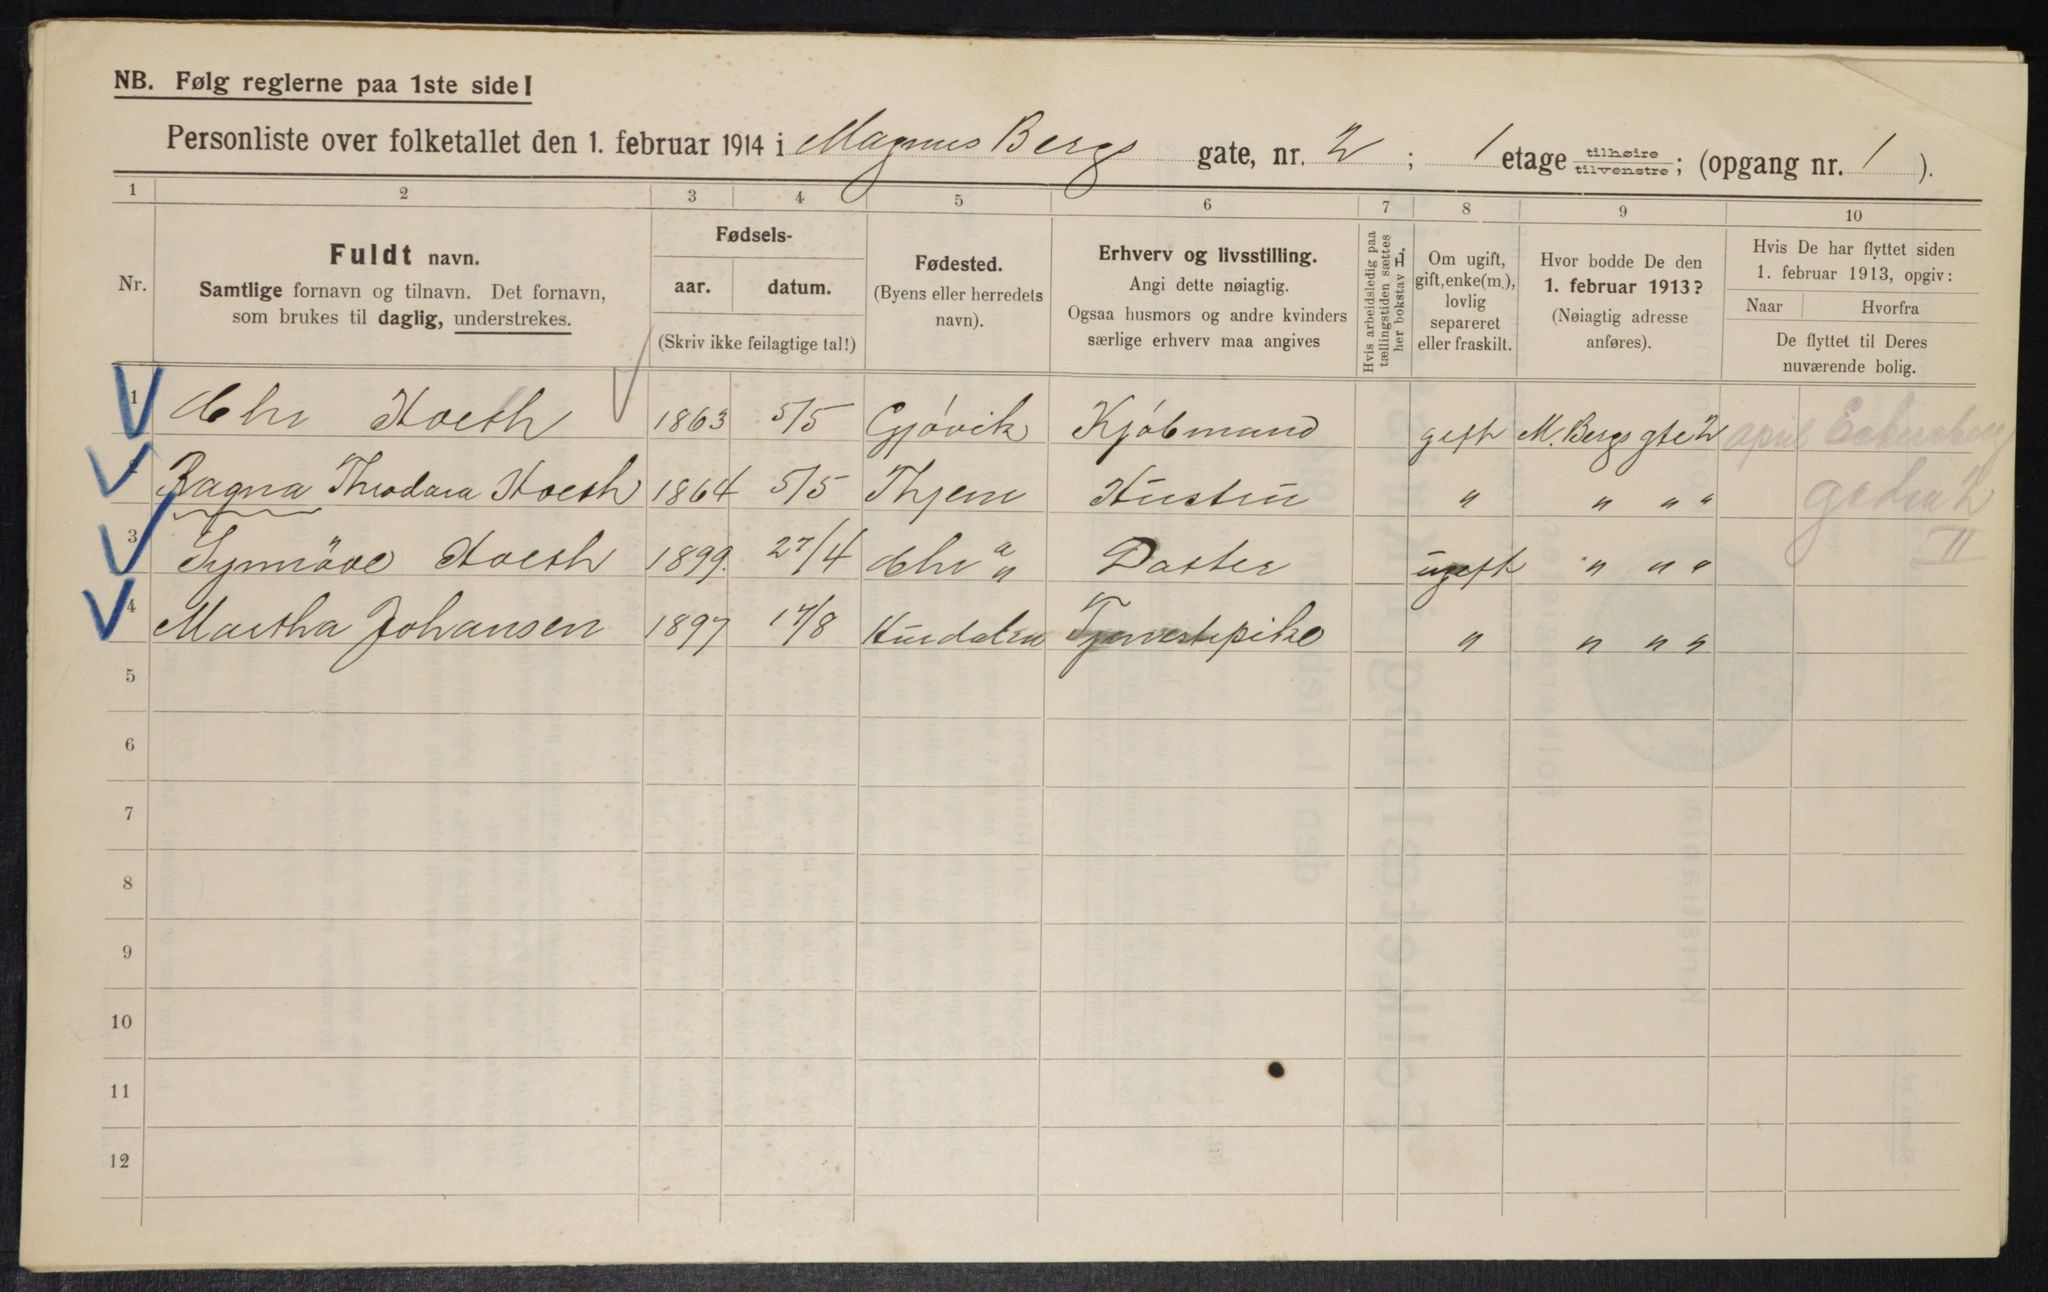 NB. Følg reglerne paa 1ste side!
Personliste over folketallet den 1. februar 1914 i Magnus Bergs gate, nr. 2 ; 1 etage tilhøire tilvenstre ; (opgang nr. 1 ).
1 2 3 4 5 6 7 8 9 10
Nr.
Fuldt navn.
Samtlige fornavn og tilnavn. Det fornavn,
som brukes til daglig, understrekes.
Fødsels-
aar. datum.
(Skriv ikke feilagtige tal!)
Fødested.
(Byens eller herredets
navn).
Erhverv og livsstilling.
Angi dette nøiagtig.
Ogsaa husmors og andre kvinders
særlige erhverv maa angives
Hvis arbeidsledig paa
tællingstiden sættes
her bokstav L.
Om ugift,
gift, enke(m.),
lovlig
separeret
eller fraskilt.
Hvor bodde De den
1. februar 1913?
(Nøiagtig adresse
anføres).
Hvis De har flyttet siden
1. februar 1913, opgiv:
Naar Hvorfra
De flyttet til Deres
nuværende bolig.
1 Chr Hoesh 1863 5/5 Gjövik Kjöbmand gift M. Bergs gte 2 april
2 Ragna Theodara Hoesh 1864 5/5 Thjem Hustru " " " "
3 Synnöve Hoesh 1899. 27/4 Chr a " Datter ugift " " "
II
4 Martha Johansen 1897 17/8 Hurdalen Tjenestepike " " " "
5
6
7
8
9
10
11
12